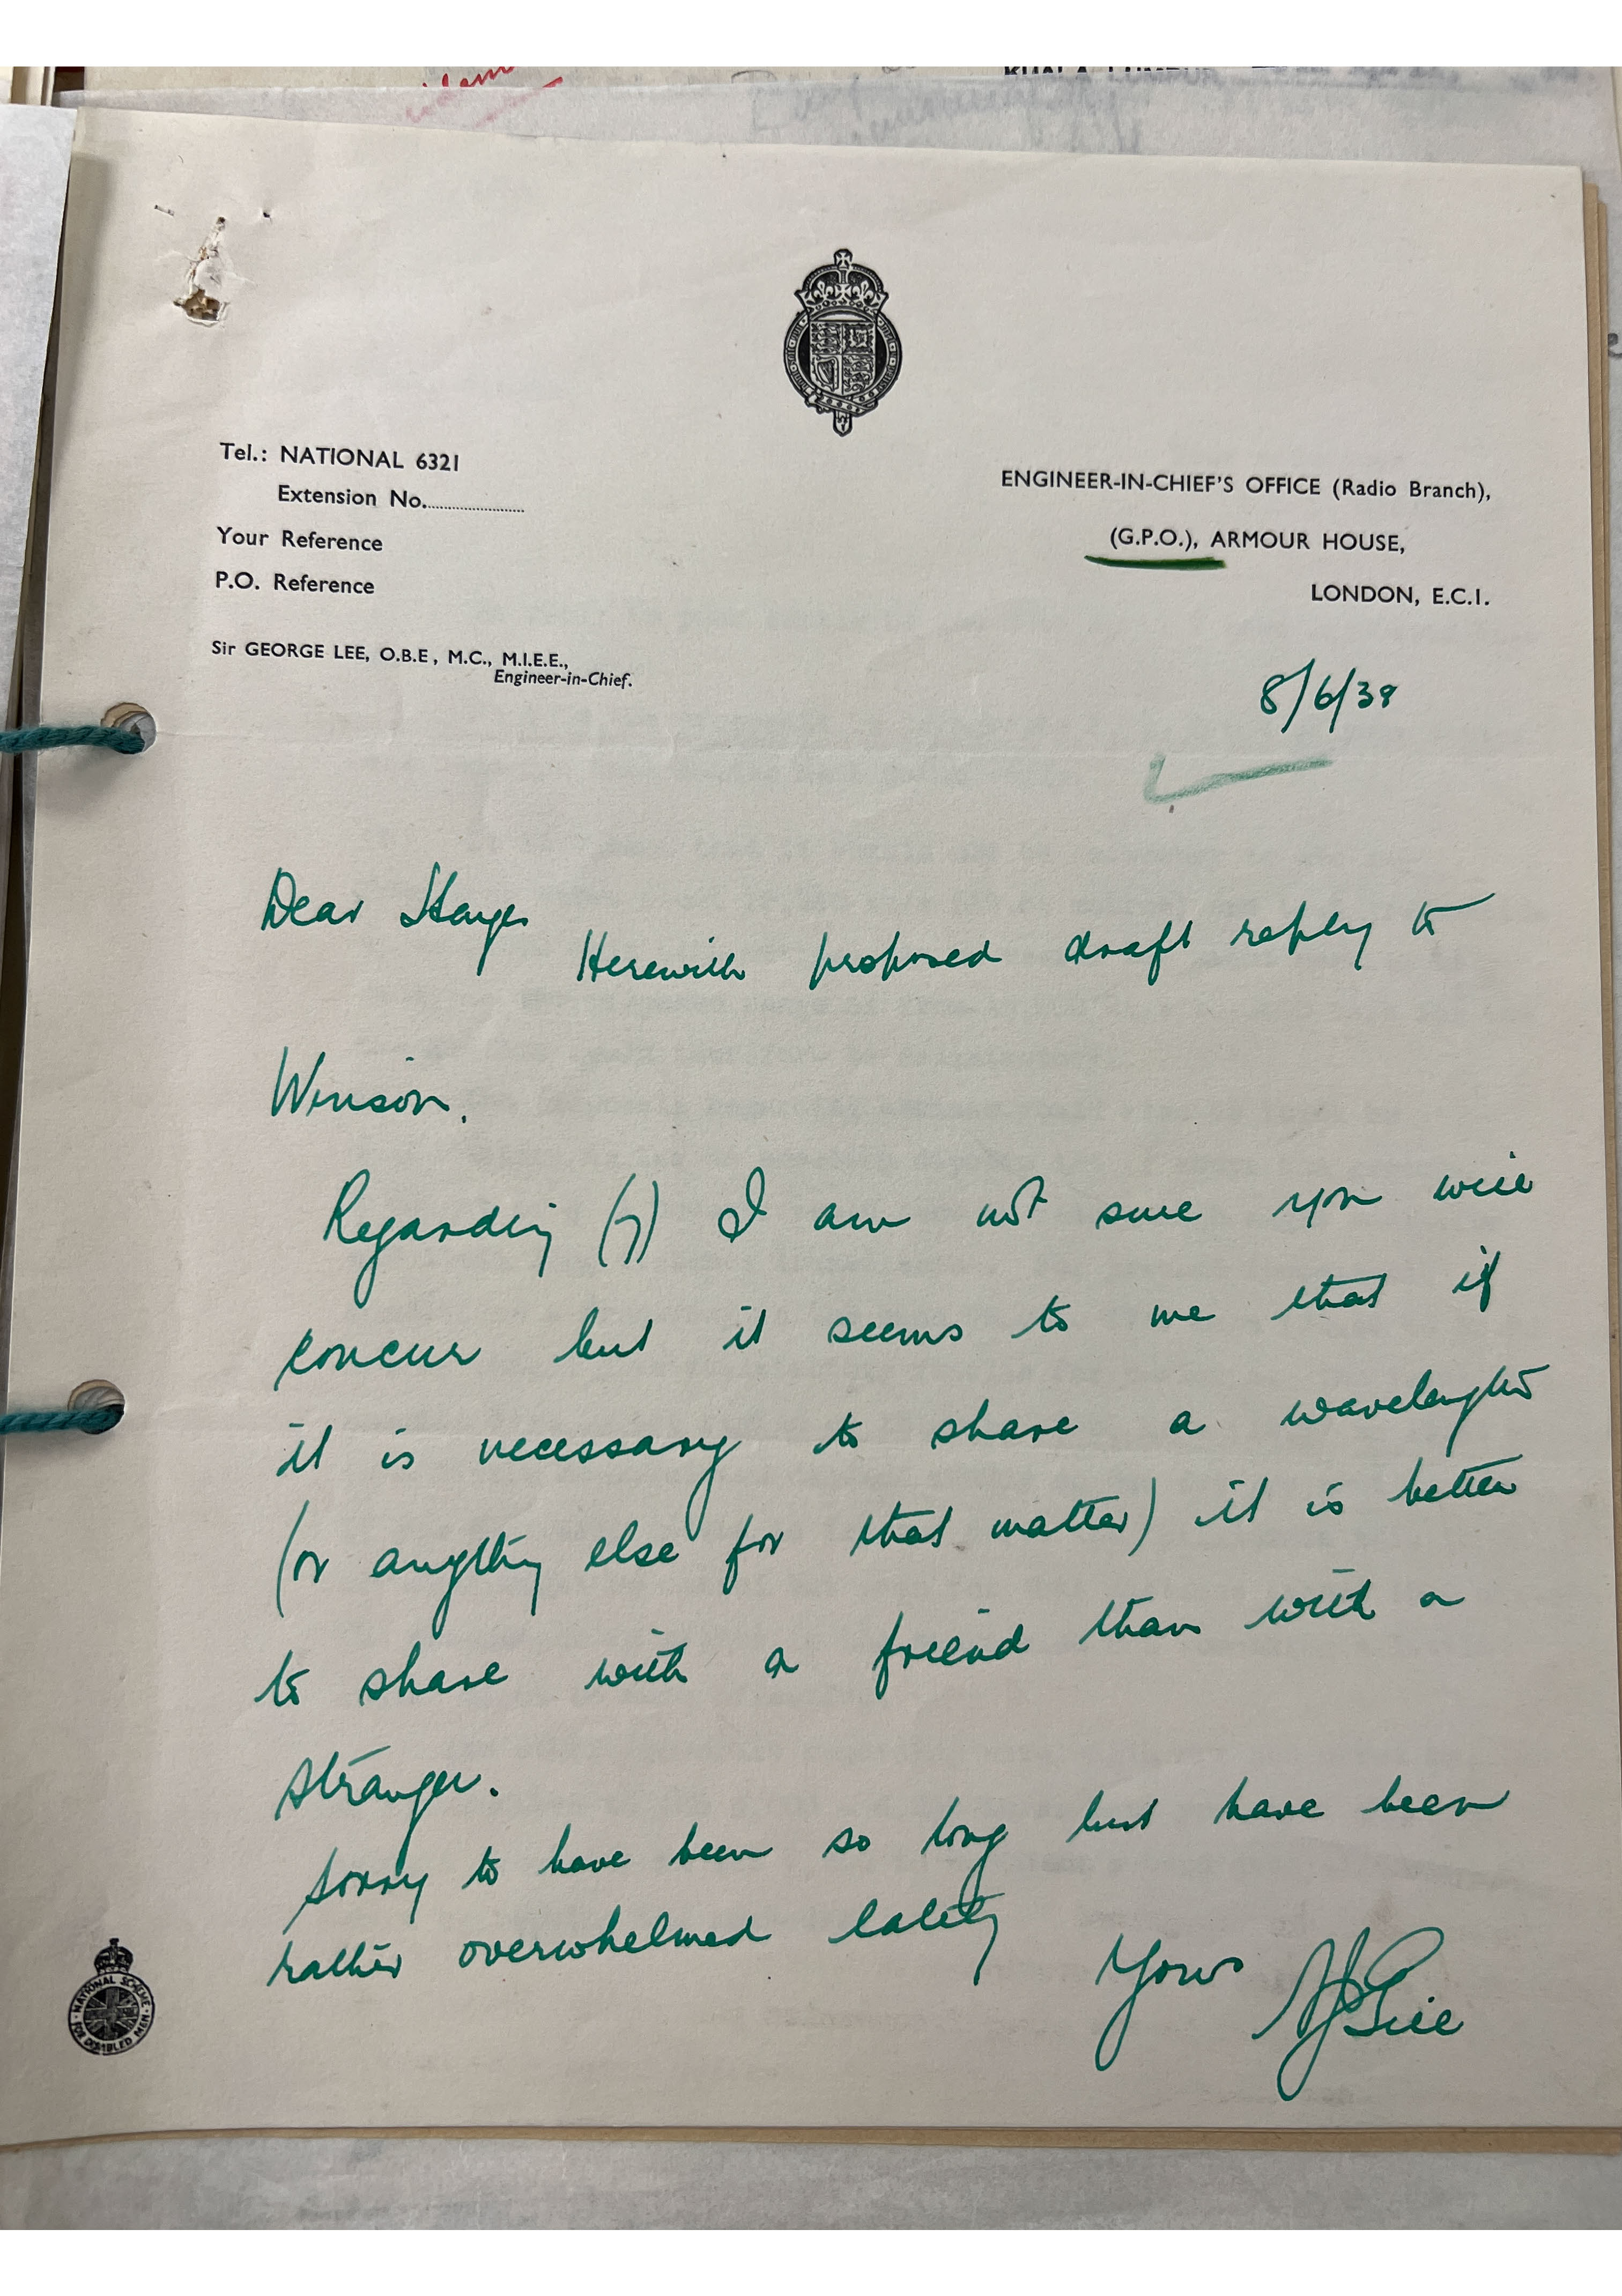 KUALA LUMPUR
Tel.: NATIONAL 6321
Extension No.
Your Reference
P.O. Reference
Sir GEORGE LEE, O.B.E, M.C., M.I.E.E.,
Engineer-in-Chief.
ENGINEER-IN-CHIEF'S OFFICE (Radio Branch),
(G.P.O.), ARMOUR HOUSE,
LONDON, E.C.1.
8/6/39
Dear Hayes
Herewith proposed draft reply to
Winson.
Regarding (7) I am not sure you will
concur but it seems to me that if
it is necessary to share a wavelength
(or anything else for that matter) it is better
to share with a friend than with a
stranger.
Sorry to have been so long but have been
rather overwhelmed lately
Yours
NATIONAL SCHEME
FOR DISABLED MEN